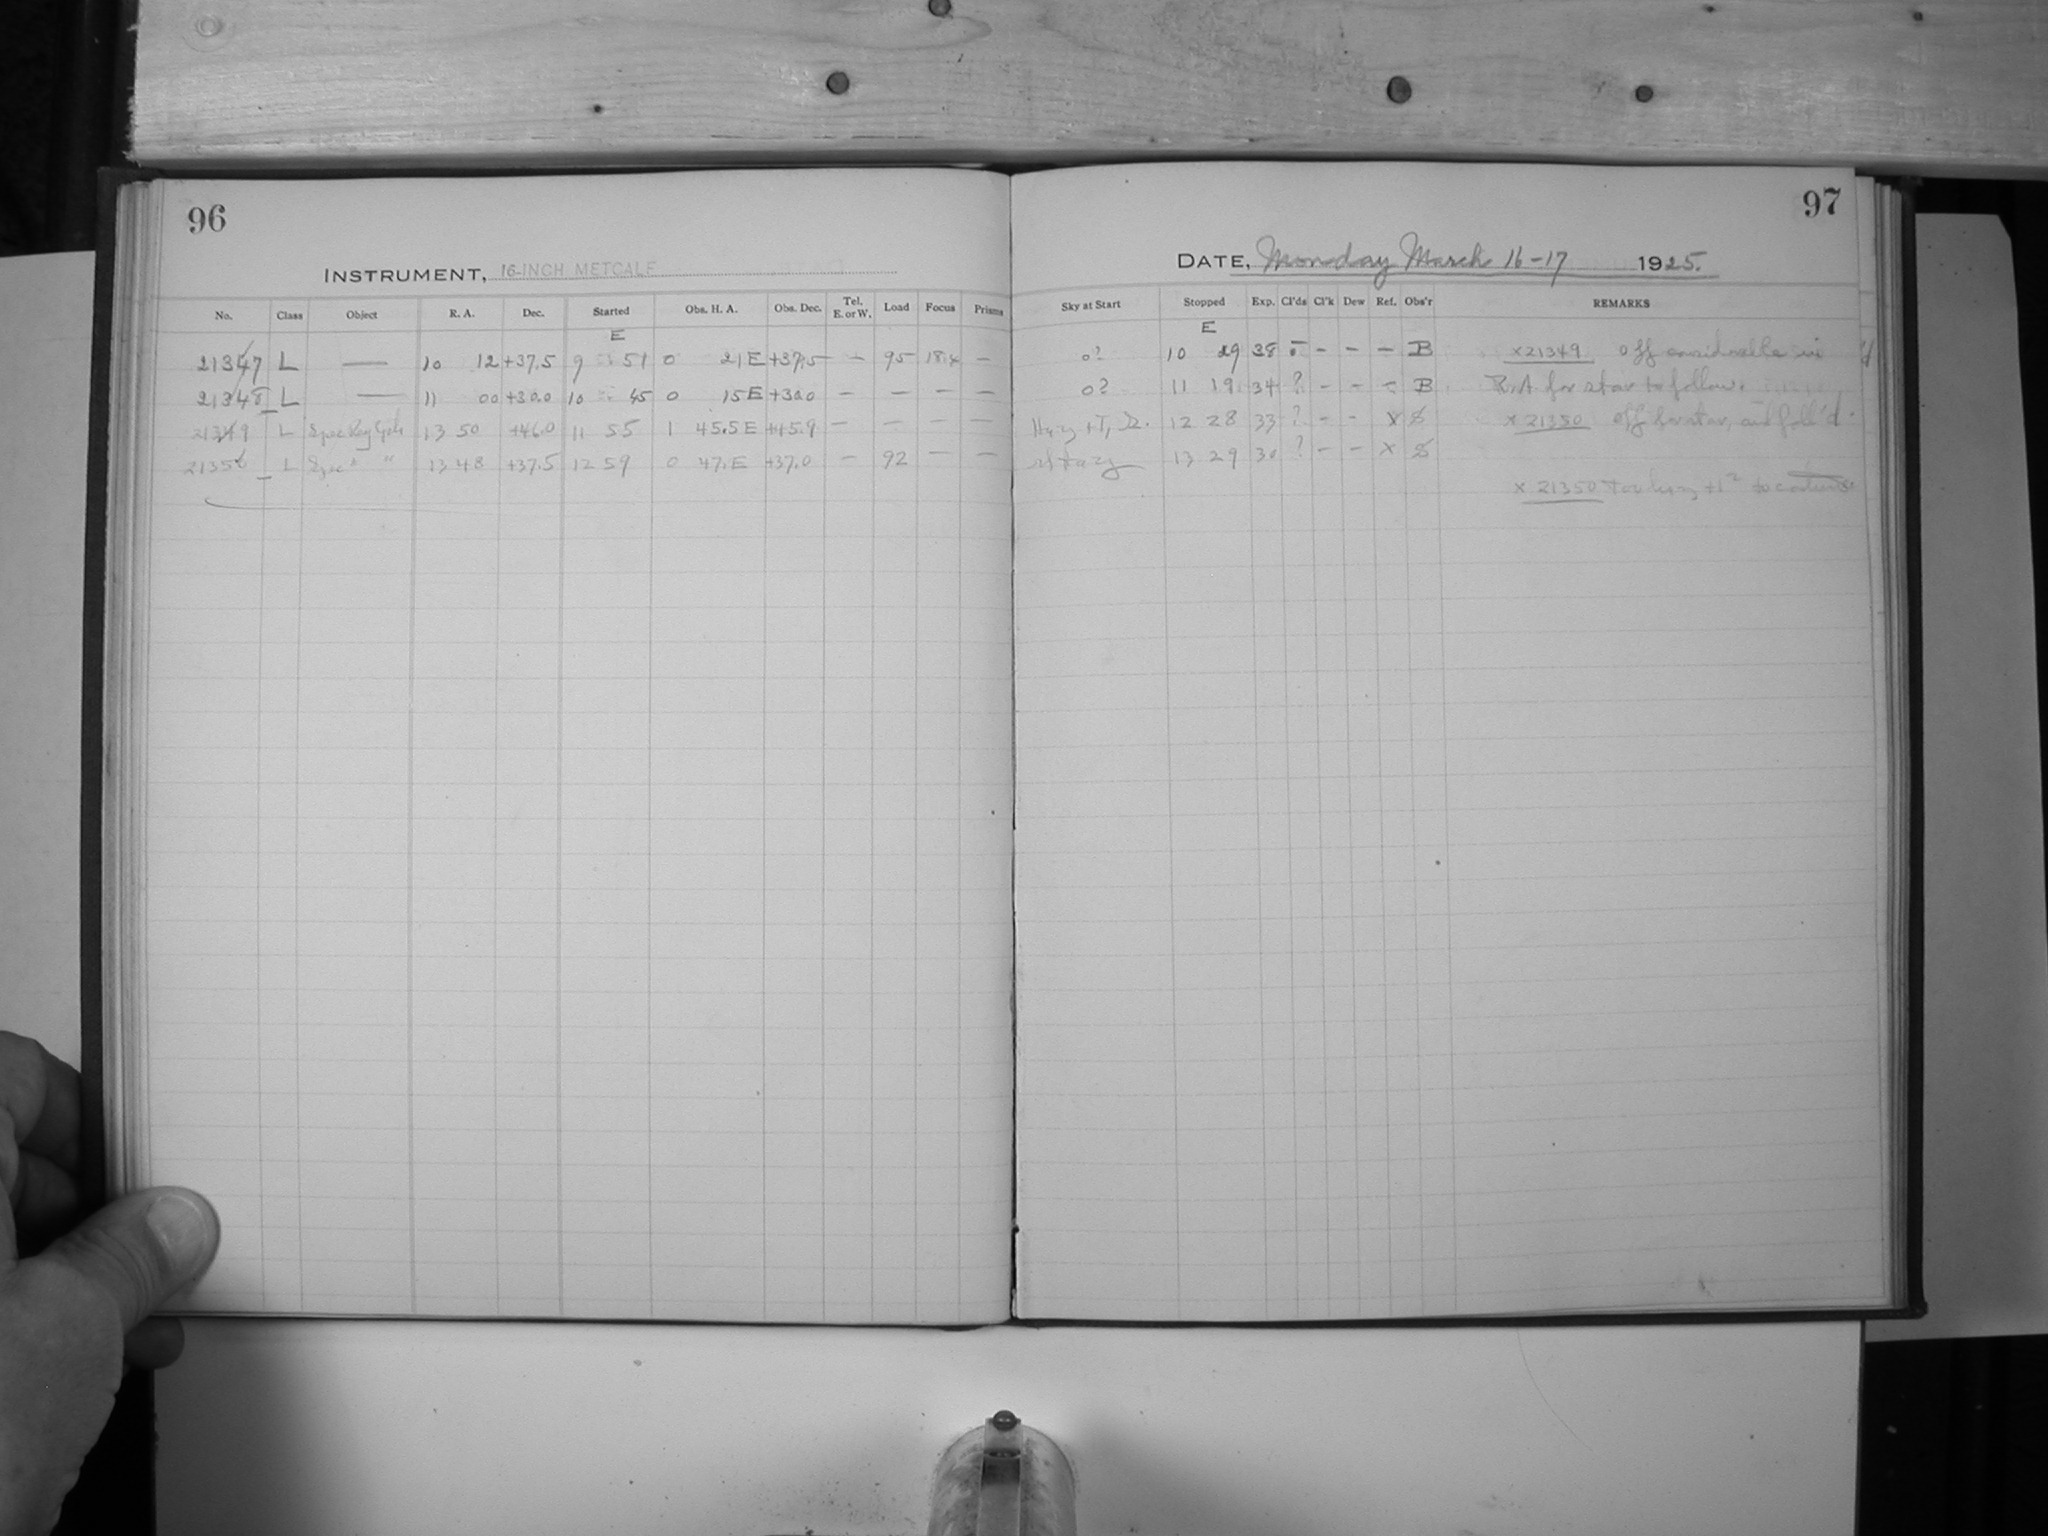 96
INSTRUMENT, 16-INCH METCALF
No. Class Object R. A. Dec. Started Obs. H. A. Obs. Dec. Tel. E. or W. Load Focus Prisms
E
21347 L — 10 12 +37.5 9 51 0 21 E +37.5 — 95 18.4 —
21348 L — 11 00 +30.0 10 45 0 15 E +30.0 — — — —
21349 L Spec Reg 13 50 +46.0 11 55 1 45.5 E +45.9 — — — —
21350 L Spec " " 13 48 +37.5 12 59 0 47. E +37.0 — 92 — —
97
DATE, Monday March 16-17 1925.
Sky at Start Stopped Exp. Cl'ds Cl'k Dew Ref. Obs'r REMARKS
E
0? 10 29 38 - - - B x21349 off considerable in
0? 11 19 34 ? - - - B R.A. for star to follow.
12 28 33 ? - - x x 21350 off for star, and foll'd
13 29 30 ? - - x
x 21350 +1² to